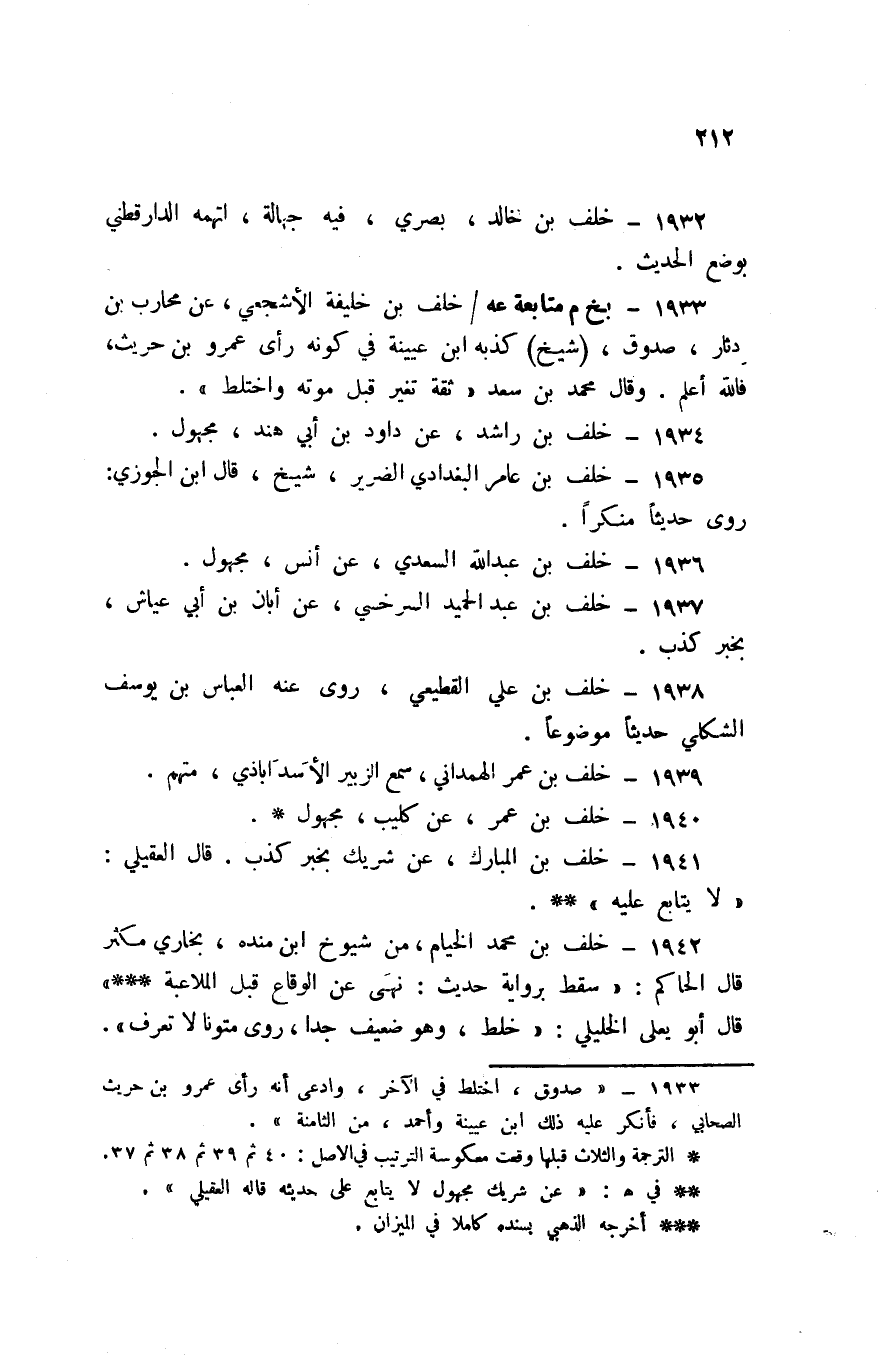 ٢١٢
١٩٣٢ – خلف بن خالد ، بصري ، فيه جهالة ، اتهمه الدارقطني
بوضع الحديث .
١٩٣٣ – بخ م متابعة عه / خلف بن خليفة الأشجعي ، عن محارب بن
دثار ، صدوق ، (شيخ) كذبه ابن عيينة في كونه رأى عمرو بن حريث،
فالله أعلم . وقال محمد بن سعد « ثقة تغير قبل موته واختلط » .
١٩٣٤ – خلف بن راشد ، عن داود بن أبي هند ، مجهول .
١٩٣٥ – خلف بن عامر البغدادي الضرير ، شيخ ، قال ابن الجوزي:
روى حديثاً منكراً .
١٩٣٦ – خلف بن عبدالله السعدي ، عن أنس ، مجهول .
١٩٣٧ – خلف بن عبد الحميد السرخسي ، عن أبان بن أبي عياش ،
بخبر كذب .
١٩٣٨ – خلف بن علي القطيعي ، روى عنه العباس بن يوسف
الشكلي حديثاً موضوعاً .
١٩٣٩ – خلف بن عمر الهمداني ، سمع الزبير الأَسدَاباذي ، متهم .
١٩٤٠ – خلف بن عمر ، عن كليب ، مجهول * .
١٩٤١ – خلف بن المبارك ، عن شريك بخبر كذب . قال العقيلي :
« لا يتابع عليه » ** .
١٩٤٢ – خلف بن محمد الخيام ، من شيوخ ابن منده ، بخاري مكثر
قال الحاكم : « سقط برواية حديث : نهَى عن الوقاع قبل الملاعبة ***»
قال أبو يعلى الخليلي : « خلط ، وهو ضعيف جدا ، روى متونا لا تعرف» .
١٩٣٣ – « صدوق ، اختلط في الآخر ، وادعى أنه رأى عمرو بن حريث
الصحابي ، فأنكر عليه ذلك ابن عيينة وأحمد ، من الثامنة » .
* الترجمة والثلاث قبلها وقعت معكوسة الترتيب في الاصل : ٤٠ ثم ٣٩ ثم ٣٨ ثم ٣٧.
** في ه : « عن شريك مجهول لا يتابع على حديثه قاله العقيلي » .
*** أخرجه الذهبي بسنده كاملا في الميزان .